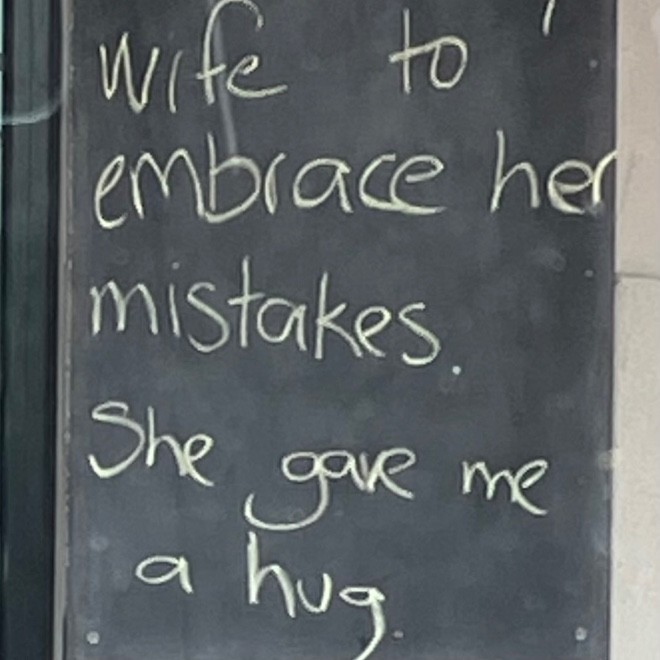 wife to
embrace her
mistakes.
She gave me
a hug.